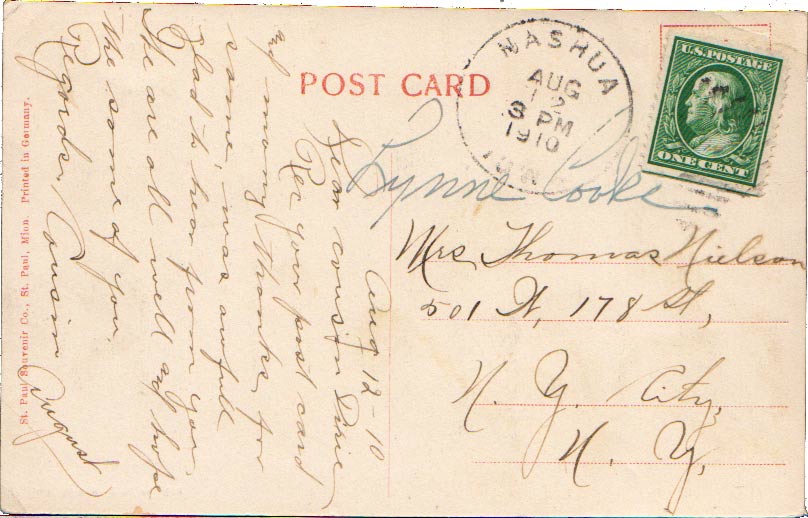 POST CARD
NASHUA
AUG
12
3 PM
1910
IOWA
U.S. POSTAGE
ONE CENT
Lynne Cooke
Mrs Thomas Nielson
501 W, 178 St,
N. Y. City,
N. Y,
Aug 12-10
Dear cousin
Rec your post card
and many thanks for
same, was awfull
glad to hear from you
We are all well and hope
the same of you.
Regards, Cousin August
St. Paul Souvenir Co., St. Paul, Minn Printed in Germany.